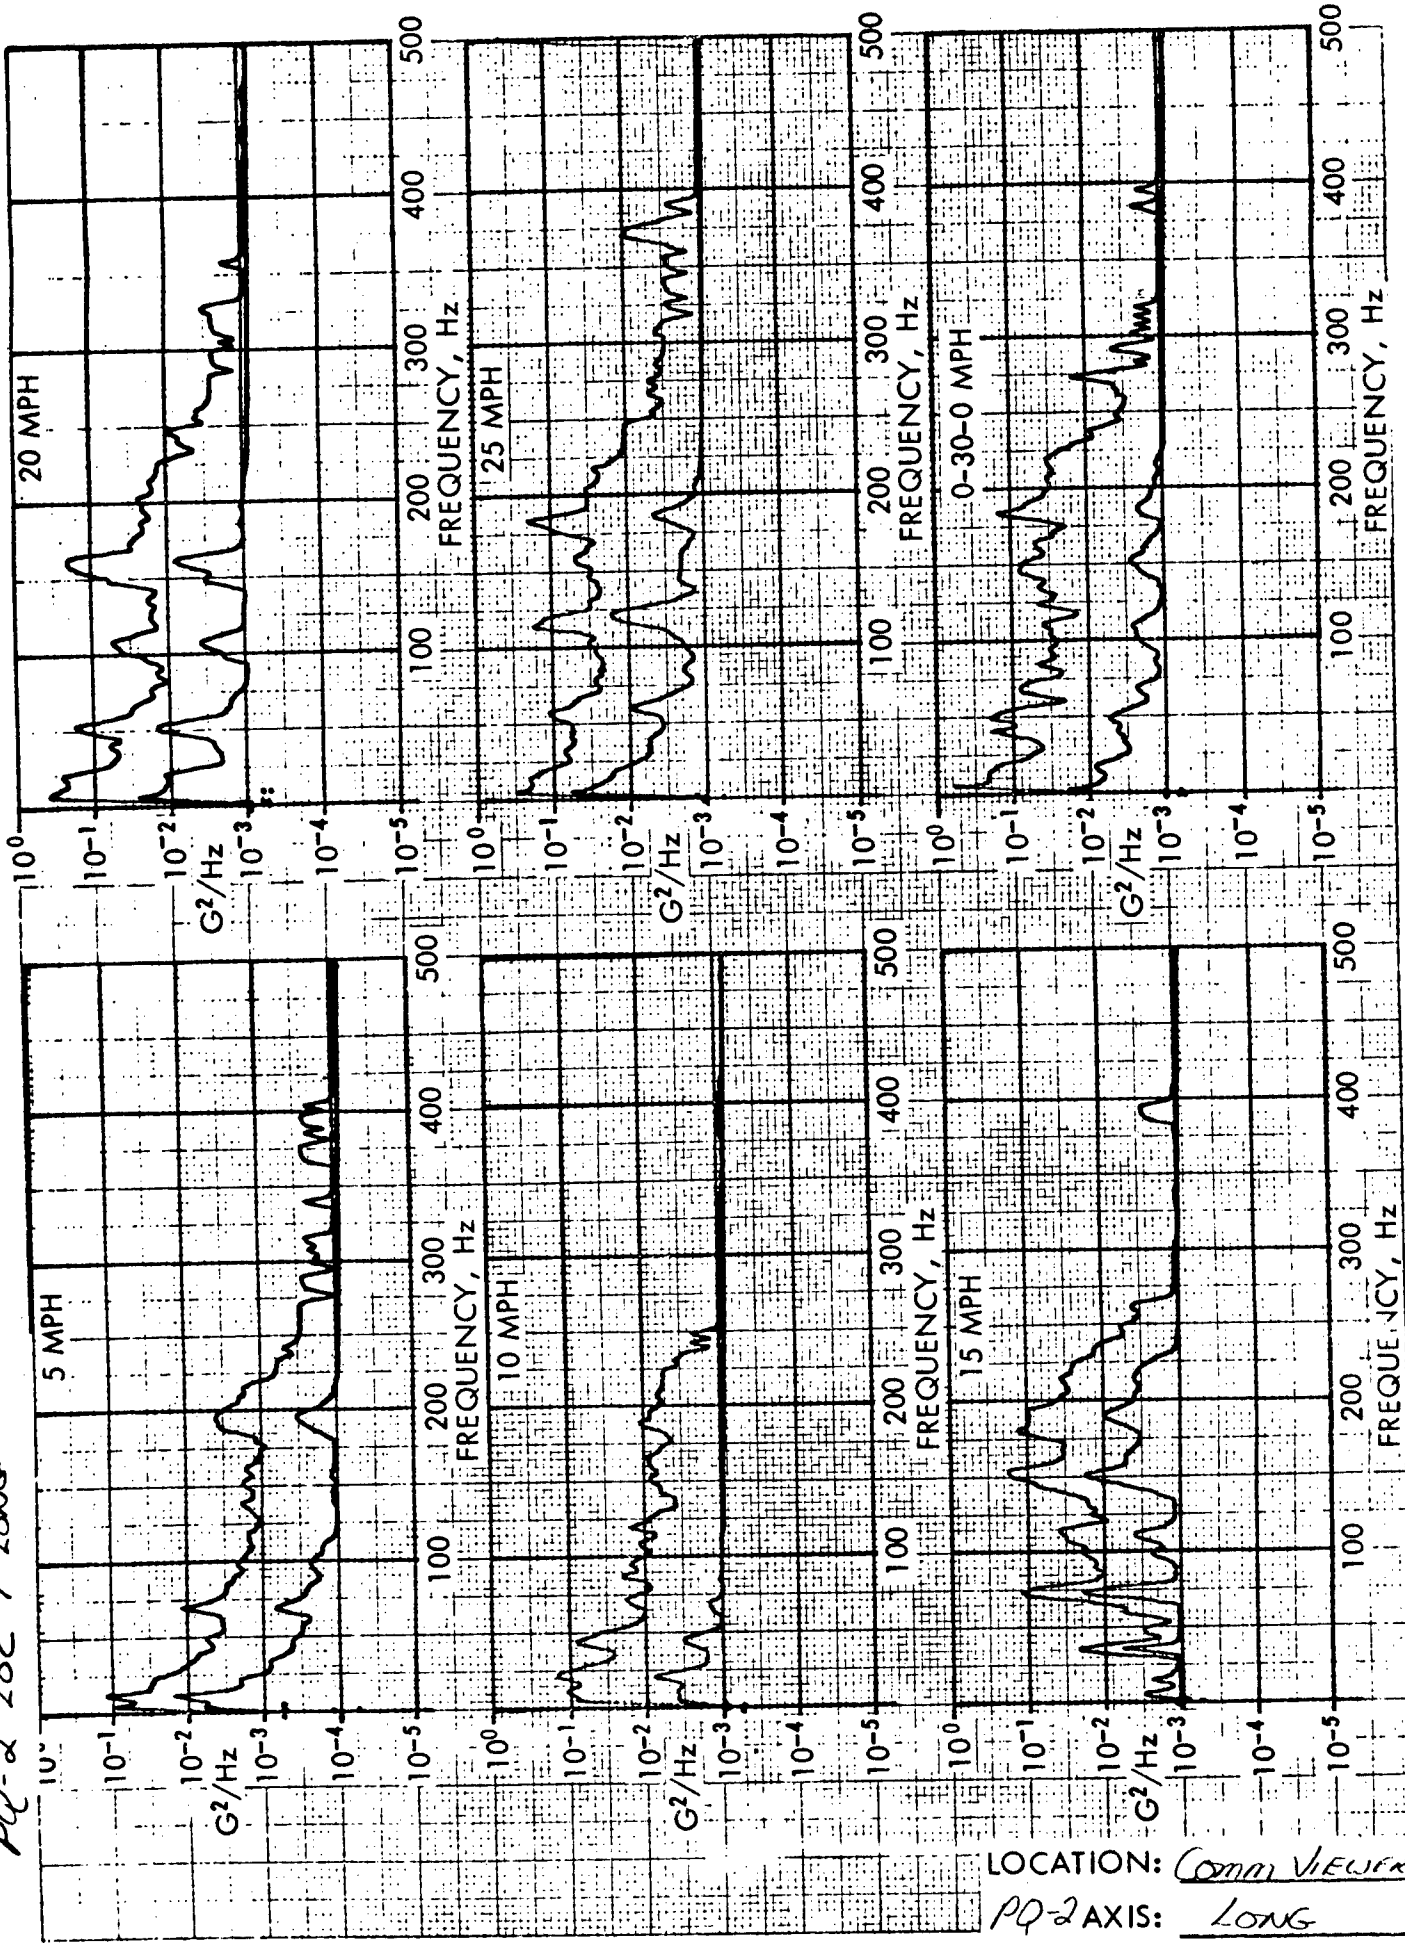 PQ-2
5 MPH
10⁻¹
10⁻²
10⁻³
10⁻⁴
10⁻⁵
G²/Hz
100
200
300
400
500
FREQUENCY, Hz
20 MPH
10⁰
10⁻¹
10⁻²
10⁻³
10⁻⁴
10⁻⁵
G²/Hz
100
200
300
400
500
FREQUENCY, Hz
10 MPH
10⁰
10⁻¹
10⁻²
10⁻³
10⁻⁴
10⁻⁵
G²/Hz
100
200
300
400
500
FREQUENCY, Hz
25 MPH
10⁰
10⁻¹
10⁻²
10⁻³
10⁻⁴
10⁻⁵
G²/Hz
100
200
300
400
500
FREQUENCY, Hz
15 MPH
10⁰
10⁻¹
10⁻²
10⁻³
10⁻⁴
10⁻⁵
G²/Hz
100
200
300
400
500
FREQUENCY, Hz
0-30-0 MPH
10⁰
10⁻¹
10⁻²
10⁻³
10⁻⁴
10⁻⁵
G²/Hz
100
200
300
400
500
FREQUENCY, Hz
LOCATION: Comm VIEWER
PQ-2 AXIS: LONG